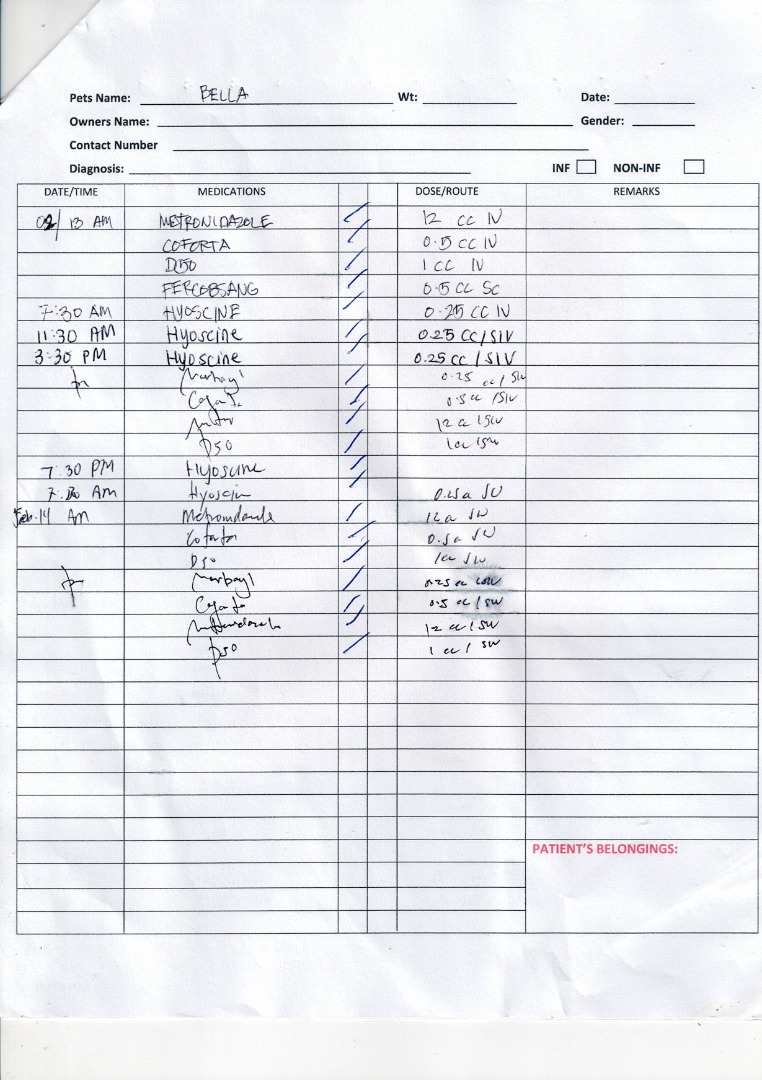 Pets Name: BELLA Wt: Date:
Owners Name: Gender:
Contact Number
Diagnosis: INF NON-INF
DATE/TIME MEDICATIONS DOSE/ROUTE REMARKS
02/13 AM METRONIDAZOLE 12 cc IV
COFORTA 0.5 cc IV
D50 1 cc IV
FERCOBSANG 0.5 cc Sc
7:30 AM HYOSCINE 0.25 CC IV
11:30 AM Hyoscine 0.25 CC/SIV
3:30 PM Hyoscine 0.25 cc /SIV
Marbocyl 0.25 cc/SIV
0.5 cc /SIV
12 cc /SIV
D50 1cc /SIV
7:30 PM Hyoscine
7:30 Am Hyoscin 0.25cc SIV
Feb. 14 Am Metronidazole 12cc SIV
Coforta 0.5cc SIV
D50 1cc SIV
Marbocyl 0.25 cc
0.5 cc /SIV
12 cc / SIV
D50 1 cc / SIV
PATIENT'S BELONGINGS: